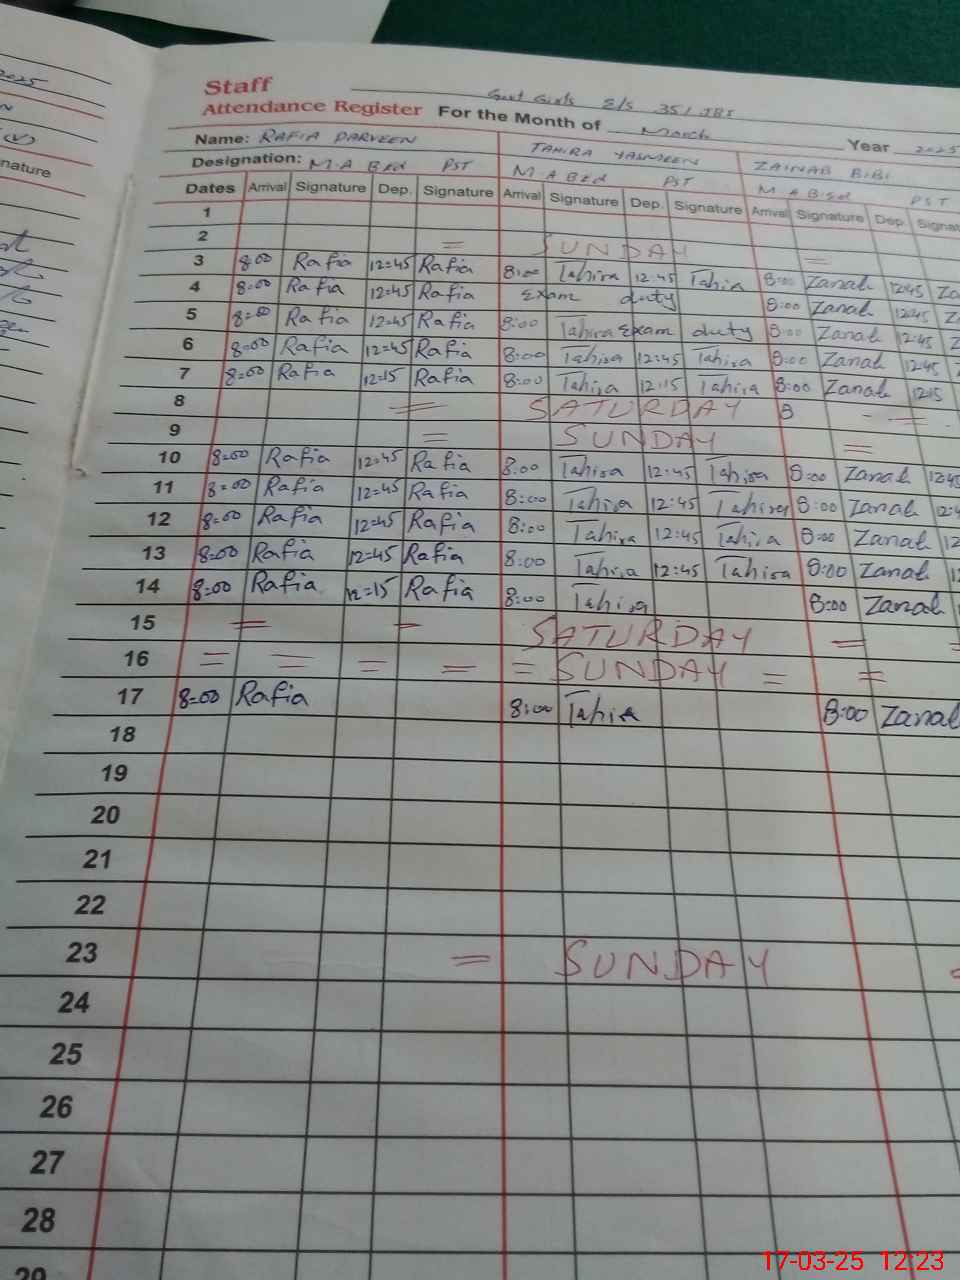 2025
nature
Staff Govt Girls E/S 351 JBI
Attendance Register For the Month of March Year 2025
Name: RAFIA PARVEEN TAHIRA YASMEEN ZAINAB BIBI
Designation: M.A B.Ed PST M.A B.Ed PST M.A B.Ed PST
Dates Arrival Signature Dep. Signature Arrival Signature Dep. Signature Arrival Signature Dep. Signat
1
2 = SUNDAY =
3 8=00 Rafia 12=45 Rafia 8:00 Tahira 12:45 Tahira 8:00 Zanab 12:45 Za
4 8=00 Rafia 12=45 Rafia Exam duty 8:00 Zanab 12:45 Z
5 8=00 Rafia 12=45 Rafia 8:00 Tahira Exam duty 8:00 Zanab 12:45 Z
6 8=00 Rafia 12=45 Rafia 8:00 Tahira 12:45 Tahira 8:00 Zanab 12:45
7 8=00 Rafia 12=15 Rafia 8:00 Tahira 12:15 Tahira 8:00 Zanab 12:15
8 = SATURDAY 8 - =
9 = SUNDAY =
10 8=00 Rafia 12=45 Rafia 8:00 Tahira 12:45 Tahira 8:00 Zanab 12:45
11 8=00 Rafia 12=45 Rafia 8:00 Tahira 12:45 Tahira 8:00 Zanab 12:4
12 8=00 Rafia 12=45 Rafia 8:00 Tahira 12:45 Tahira 8:00 Zanab 12
13 8=00 Rafia 12=45 Rafia 8:00 Tahira 12:45 Tahira 8:00 Zanab 1
14 8=00 Rafia 12=15 Rafia 8:00 Tahira 8:00 Zanab 1
15 = = SATURDAY = =
16 = = = = = SUNDAY = =
17 8=00 Rafia 8:00 Tahira 8:00 Zanab
18
19
20
21
22
23 = SUNDAY =
24
25
26
27
28
29
17-03-25 12:23